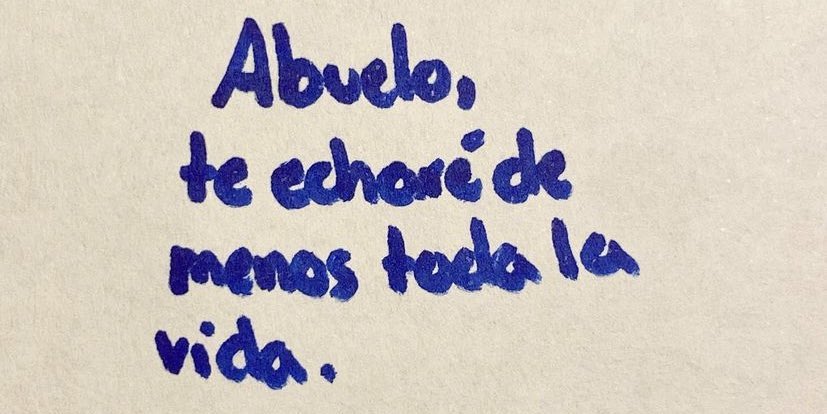 Abuelo,
te echaré de
menos toda la
vida.